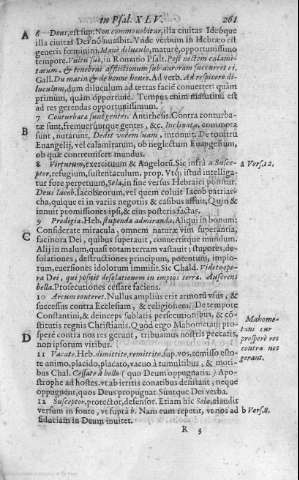 in Psal. XLV. 261
A 6 Deus, est sup. Non commovebitur, illa civitas. Ideoque
illa civitas Dei nō nutabit. Unde verbum in Hebræo est
generis feminini. Mane diluculo, mature, opportunissimo
tempore. Vultu suo, in Romano Psalt. Post noctem calamitatum,
Gall. Du matin & de bonne heure. Ad verb. Ad respicere diluculum,
dum diluculum ad terras facit converti: quàm
primum, quàm opportunè. Tempus enim matutinū est
ad res gerendas opportunissimum.
7 Conturbatæ sunt gentes. Antithesis. Contra conturbatæ
sunt, fremuerunt que gentes, &c. Inclinata, commota
sunt, nutarunt. Dedit vocem suam, intonuit. De tonitru
B Evangelij, vel calamitatum, ob neglectum Evangelium,
ob quæ contremiscet mundus.
8 Virtutum, exercituum & Angelorū. Sic infrà a Susceptor,
refugium, sustentaculum. prop. Vtq; istud intelligatur
fore perpetuum, Sela, in fine versus Hebraici ponitur.
Deus Iacob, Iacobæorum, vel quem coluit Iacob patriarcha,
quique ei in variis negotiis & casibus affuit, Quòd
innuit promissiones ipsi, & eius posteris factas.
a Vers. 12.
9 Prodigia. Heb. stupenda admiranda. Aliqui in bonum:
C Considerate miracula, omnem naturæ vim superantia,
facinora Dei, quibus superaut, connectitque mundum.
Alij in malum, quasi totam terram vastauit: stupores, desolationes,
destructiones principum, potentum, impiorum,
eversiones idolorum immisit. Sic Chald. Videte opera
Dei, qui posuit desolationem in impiis terræ. Auferens
bella. Prosecutiones cessare faciens.
10 Arcum conteret. Nullus amplius erit armorū usus, &
successus contra Ecclesiam, & religionem. De tempore
Constantini, & deinceps sublatis prosecutionibus, & constitutis
regnis Christianis. Quòd ergo Mahometani prosperè
D contra nos res gerant, tribuamus nostris peccatis,
non ipsorum viribus.
Mahometani
cur
prosperè res
contra nos
gerant.
11 Vacate. Heb. dimittite, remittite. sup. vos, remisso estote
animo, placido, placato, vacuo à tumultibus, & moribus
Chal. Cessate à bello (quo Deum oppugnatis.) Apostrophe
ad hostes, vt ab irritis conatibus desistant, neque
oppugnent, quos Deus propugnat. Suntque Dei verba.
12 Susceptor, protector, defensor. Etiam hîc Sela, claudit
versum in fonte, vt suprà b. Nam eum repetit, ve nos ad
fiduciam in Deum invitet.
b Vers. 8.
R 3